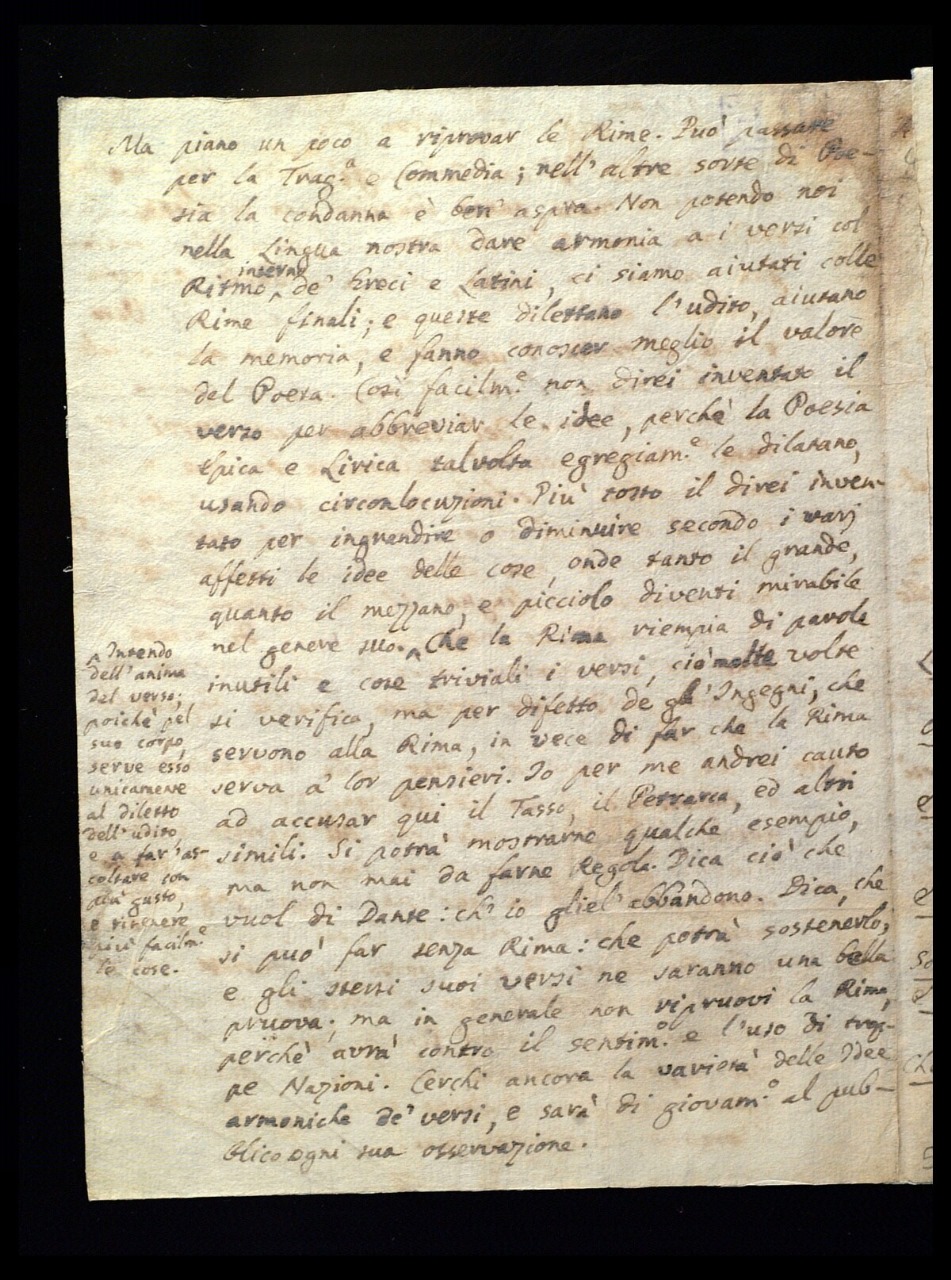 Ma piano un poco a riprovar le Rime. Può passare
per la Trag.a e Commedia; nell'altre sorte di Poe-
sia la condanna è ben' aspra. Non potendo noi
nella Lingua nostra dare armonia a i versi col
interno
Ritmo ^ de' Greci e Latini, ci siamo aiutati colle
Rime finali; e queste dilettano l'udito, aiutano
la memoria, e fanno conoscer meglio il valore
del Poeta. Così facilm.e non direi inventato il
verso per abbreviar le idee, perchè la Poesia
Epica e Lirica talvolta egregiam.e le dilatano,
usando circonlocuzioni. Più tosto il direi inven-
tato per ingrandire o diminuire secondo i varj
affetti le idee delle cose, onde tanto il grande,
quanto il mezzano, e picciolo diventi mirabile
nel genere suo. ^ Che la Rima riempia di parole
inutili e cose triviali i versi, ciò molte volte
si verifica, ma per difetto de gl'Ingegni, che
servono alla Rima, in vece di far che la Rima
serva a' lor pensieri. Io per me andrei cauto
ad accusar qui il Tasso, il Petrarca, ed altri
simili. Si potrà mostrarne qualche esempio,
ma non mai da farne Regola. Dica ciò che
vuol di Dante: ch' io gliel' abbandono. Dica, che
si può far senza Rima: che potrà sostenerlo,
e gli stessi suoi versi ne saranno una bella
pruova; ma in generale non ripruovi la Rima,
perchè avrà contro il sentim.o e l'uso di trop-
pe Nazioni. Cerchi ancora la varietà delle Idee
armoniche de' versi, e sarà di giovam.o al pub-
blico ogni sua osservazione.
^ Intendo
dell'anima
del verso;
poichè pel
suo corpo,
serve esso
unicamente
al diletto
dell'udito
e a far' as-
coltare con
più gusto,
e ritenere
più facilm.e
le cose.